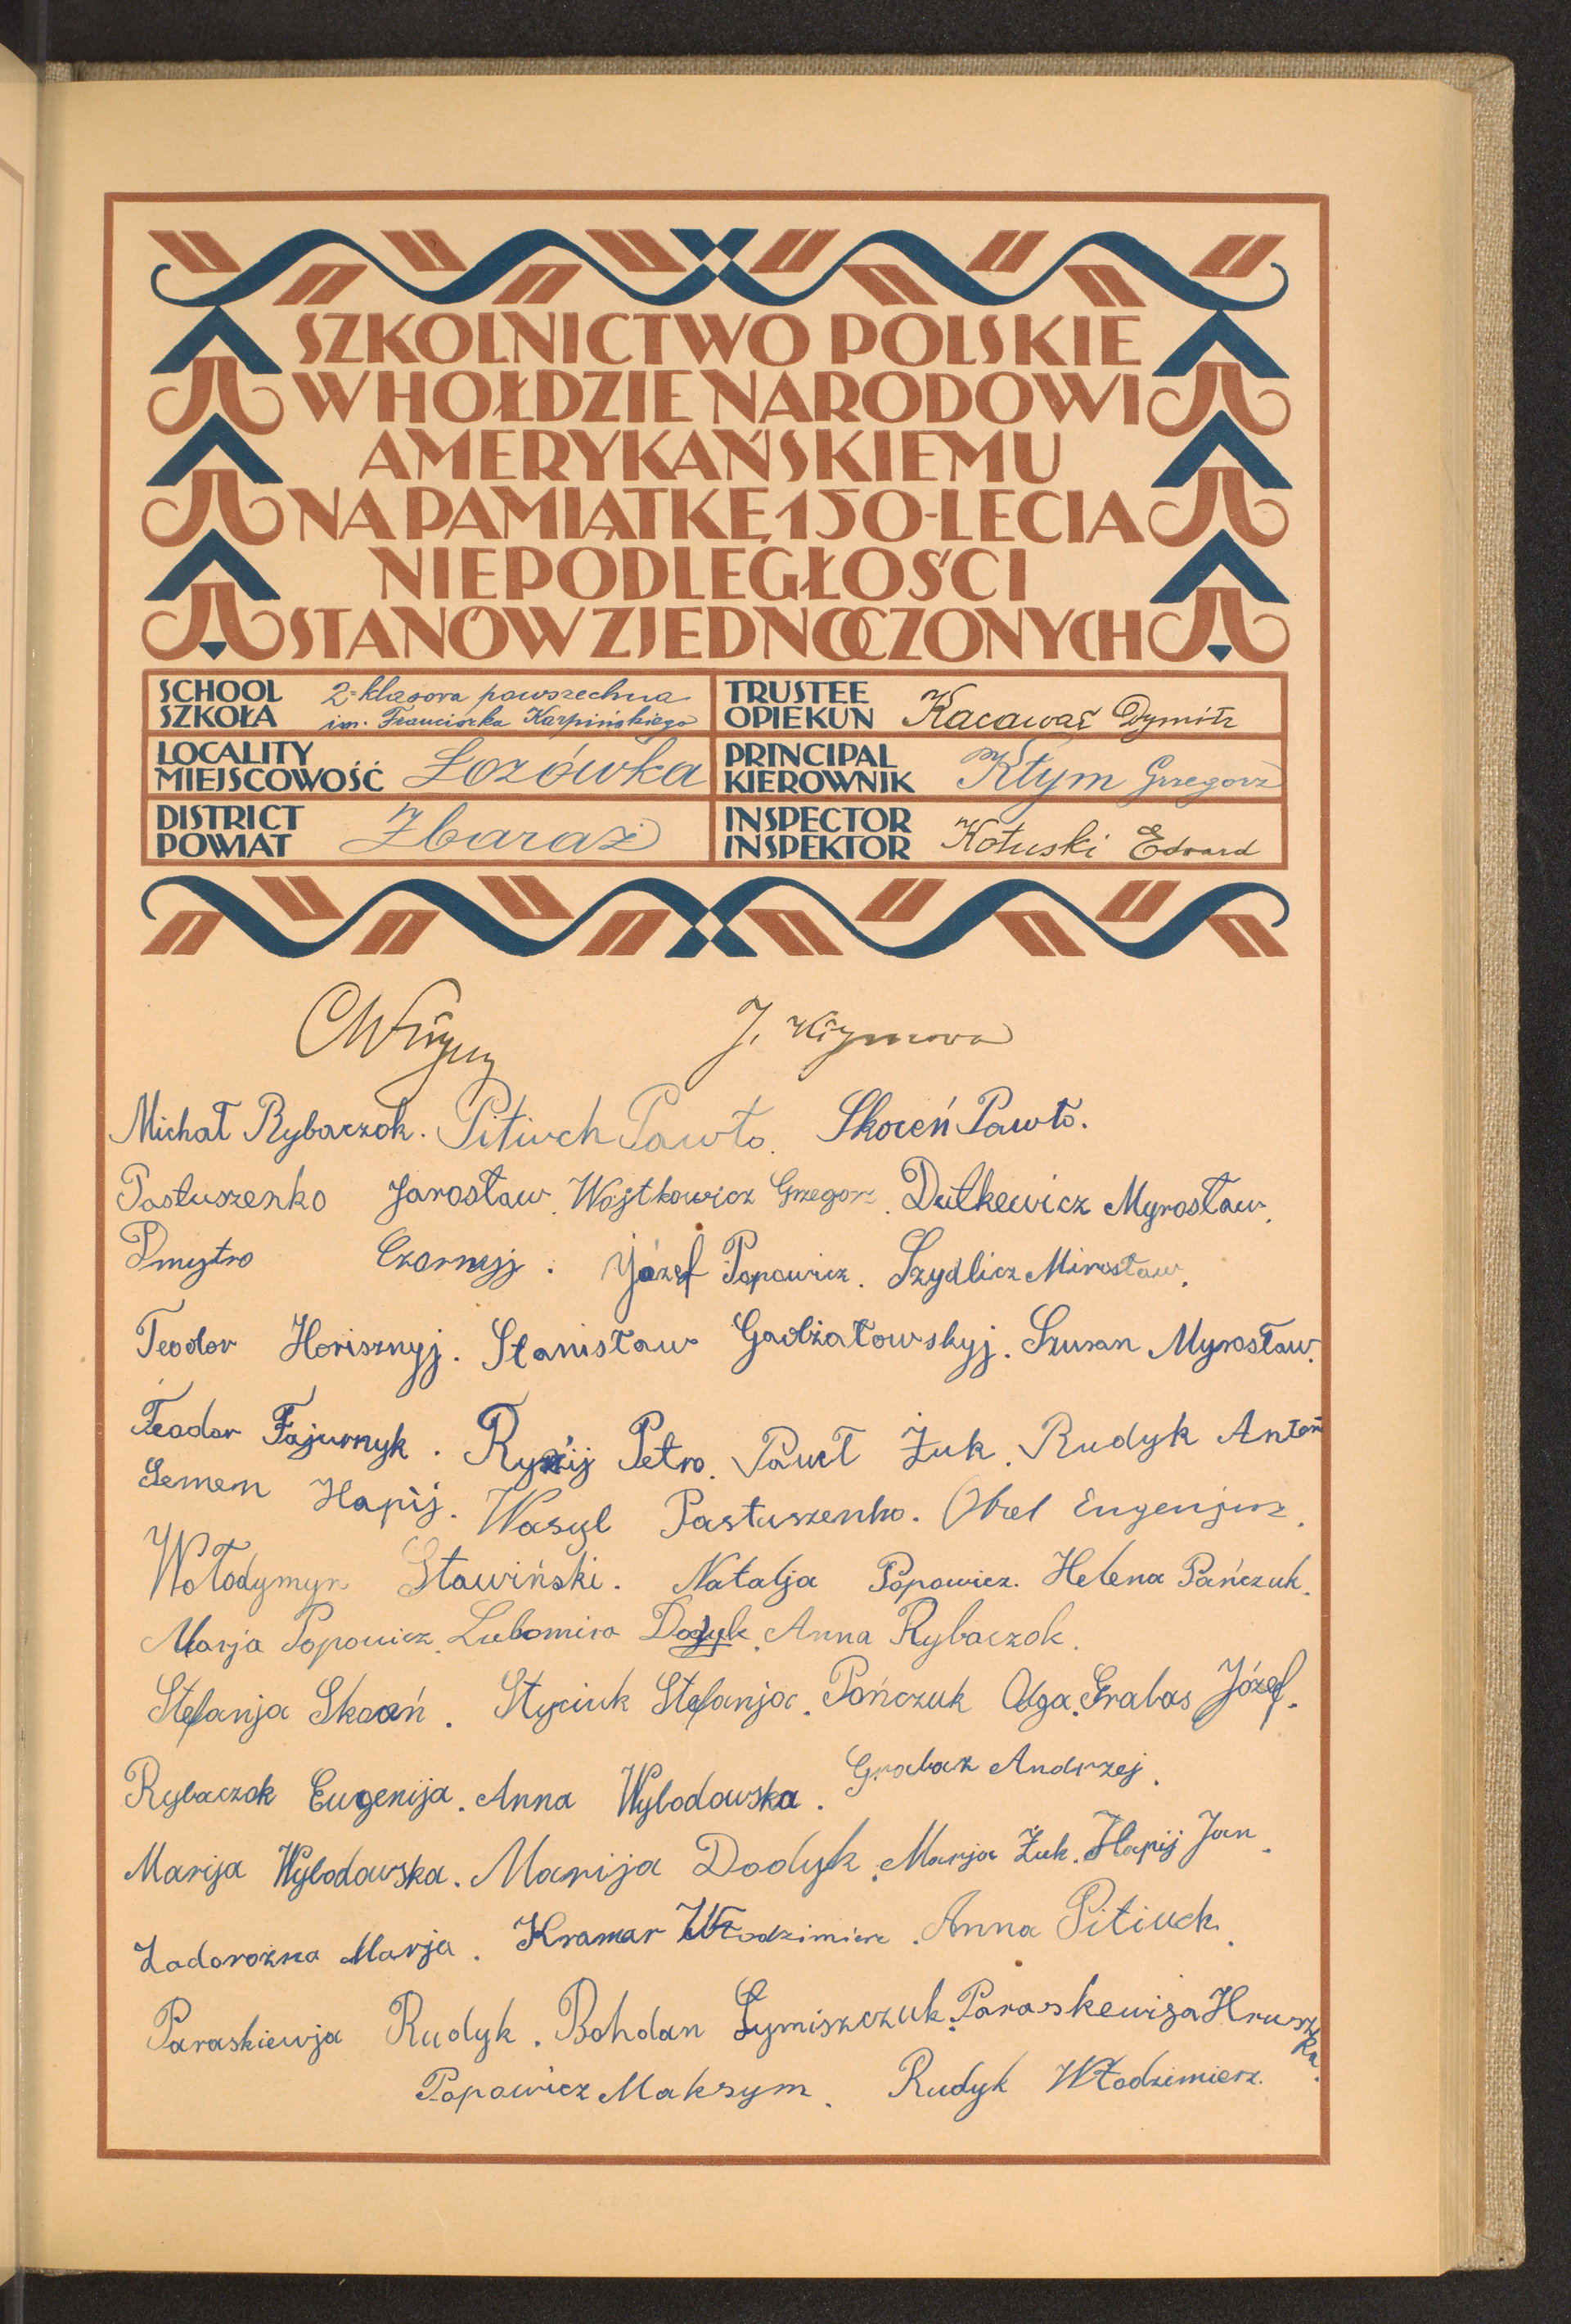 SZKOLNICTWO POLSKIE
W HOŁDZIE NARODOWI
AMERYKAŃSKIEMU
NA PAMIĄTKĘ 150-LECIA
NIEPODLEGŁOŚCI
STANÓW ZJEDNOCZONYCH
SCHOOL SZKOŁA 2-klasowa powszechna im. Franciszka Karpińskiego
TRUSTEE OPIEKUN Kacawał Dymitr
LOCALITY MIEJSCOWOŚĆ Łozówka
PRINCIPAL KIEROWNIK Kłym Grzegorz
DISTRICT POWIAT Zbaraż
INSPECTOR INSPEKTOR Kotuski Edward
J. Kłymowa
Michał Rybaczok. Pitiuch Pawło. Skoceń Pawło.
Pastuszenko Jarosław. Wojtkowicz Grzegorz. Dutkewicz Myrosław.
Dmytro Czornyj. Józef Popowicz. Szydlicz Mirosław.
Teodor Horisznyj. Stanisław Gadżałowskyj. Szuran Myrosław.
Teodor Fajurnyk. Ryżij Petro. Paweł Żuk. Rudyk Antoń
Semem Hapij. Wasyl Pastuszenko. Obel Eugenjusz.
Wołodymyr Stawiński. Natalja Popowicz. Helena Pańczuk.
Marja Popowicz. Lubomira Dodyk. Anna Rybaczok.
Stefanja Skoceń. Styciuk Stefanja. Pańczuk Olga. Grabas Józef.
Rybaczok Eugenija. Anna Wylodowska. Grabaz Andrzej.
Marija Wylodowska. Marija Dodyk. Marja Żuk. Hapij Jan.
Zadorożna Marja. Kramar Włodzimierz. Anna Pitiuch.
Paraskiewja Rudyk. Bohdan Łymiszczuk. Paraskewija Hruszka.
Popowicz Maksym. Rudyk Włodzimierz.